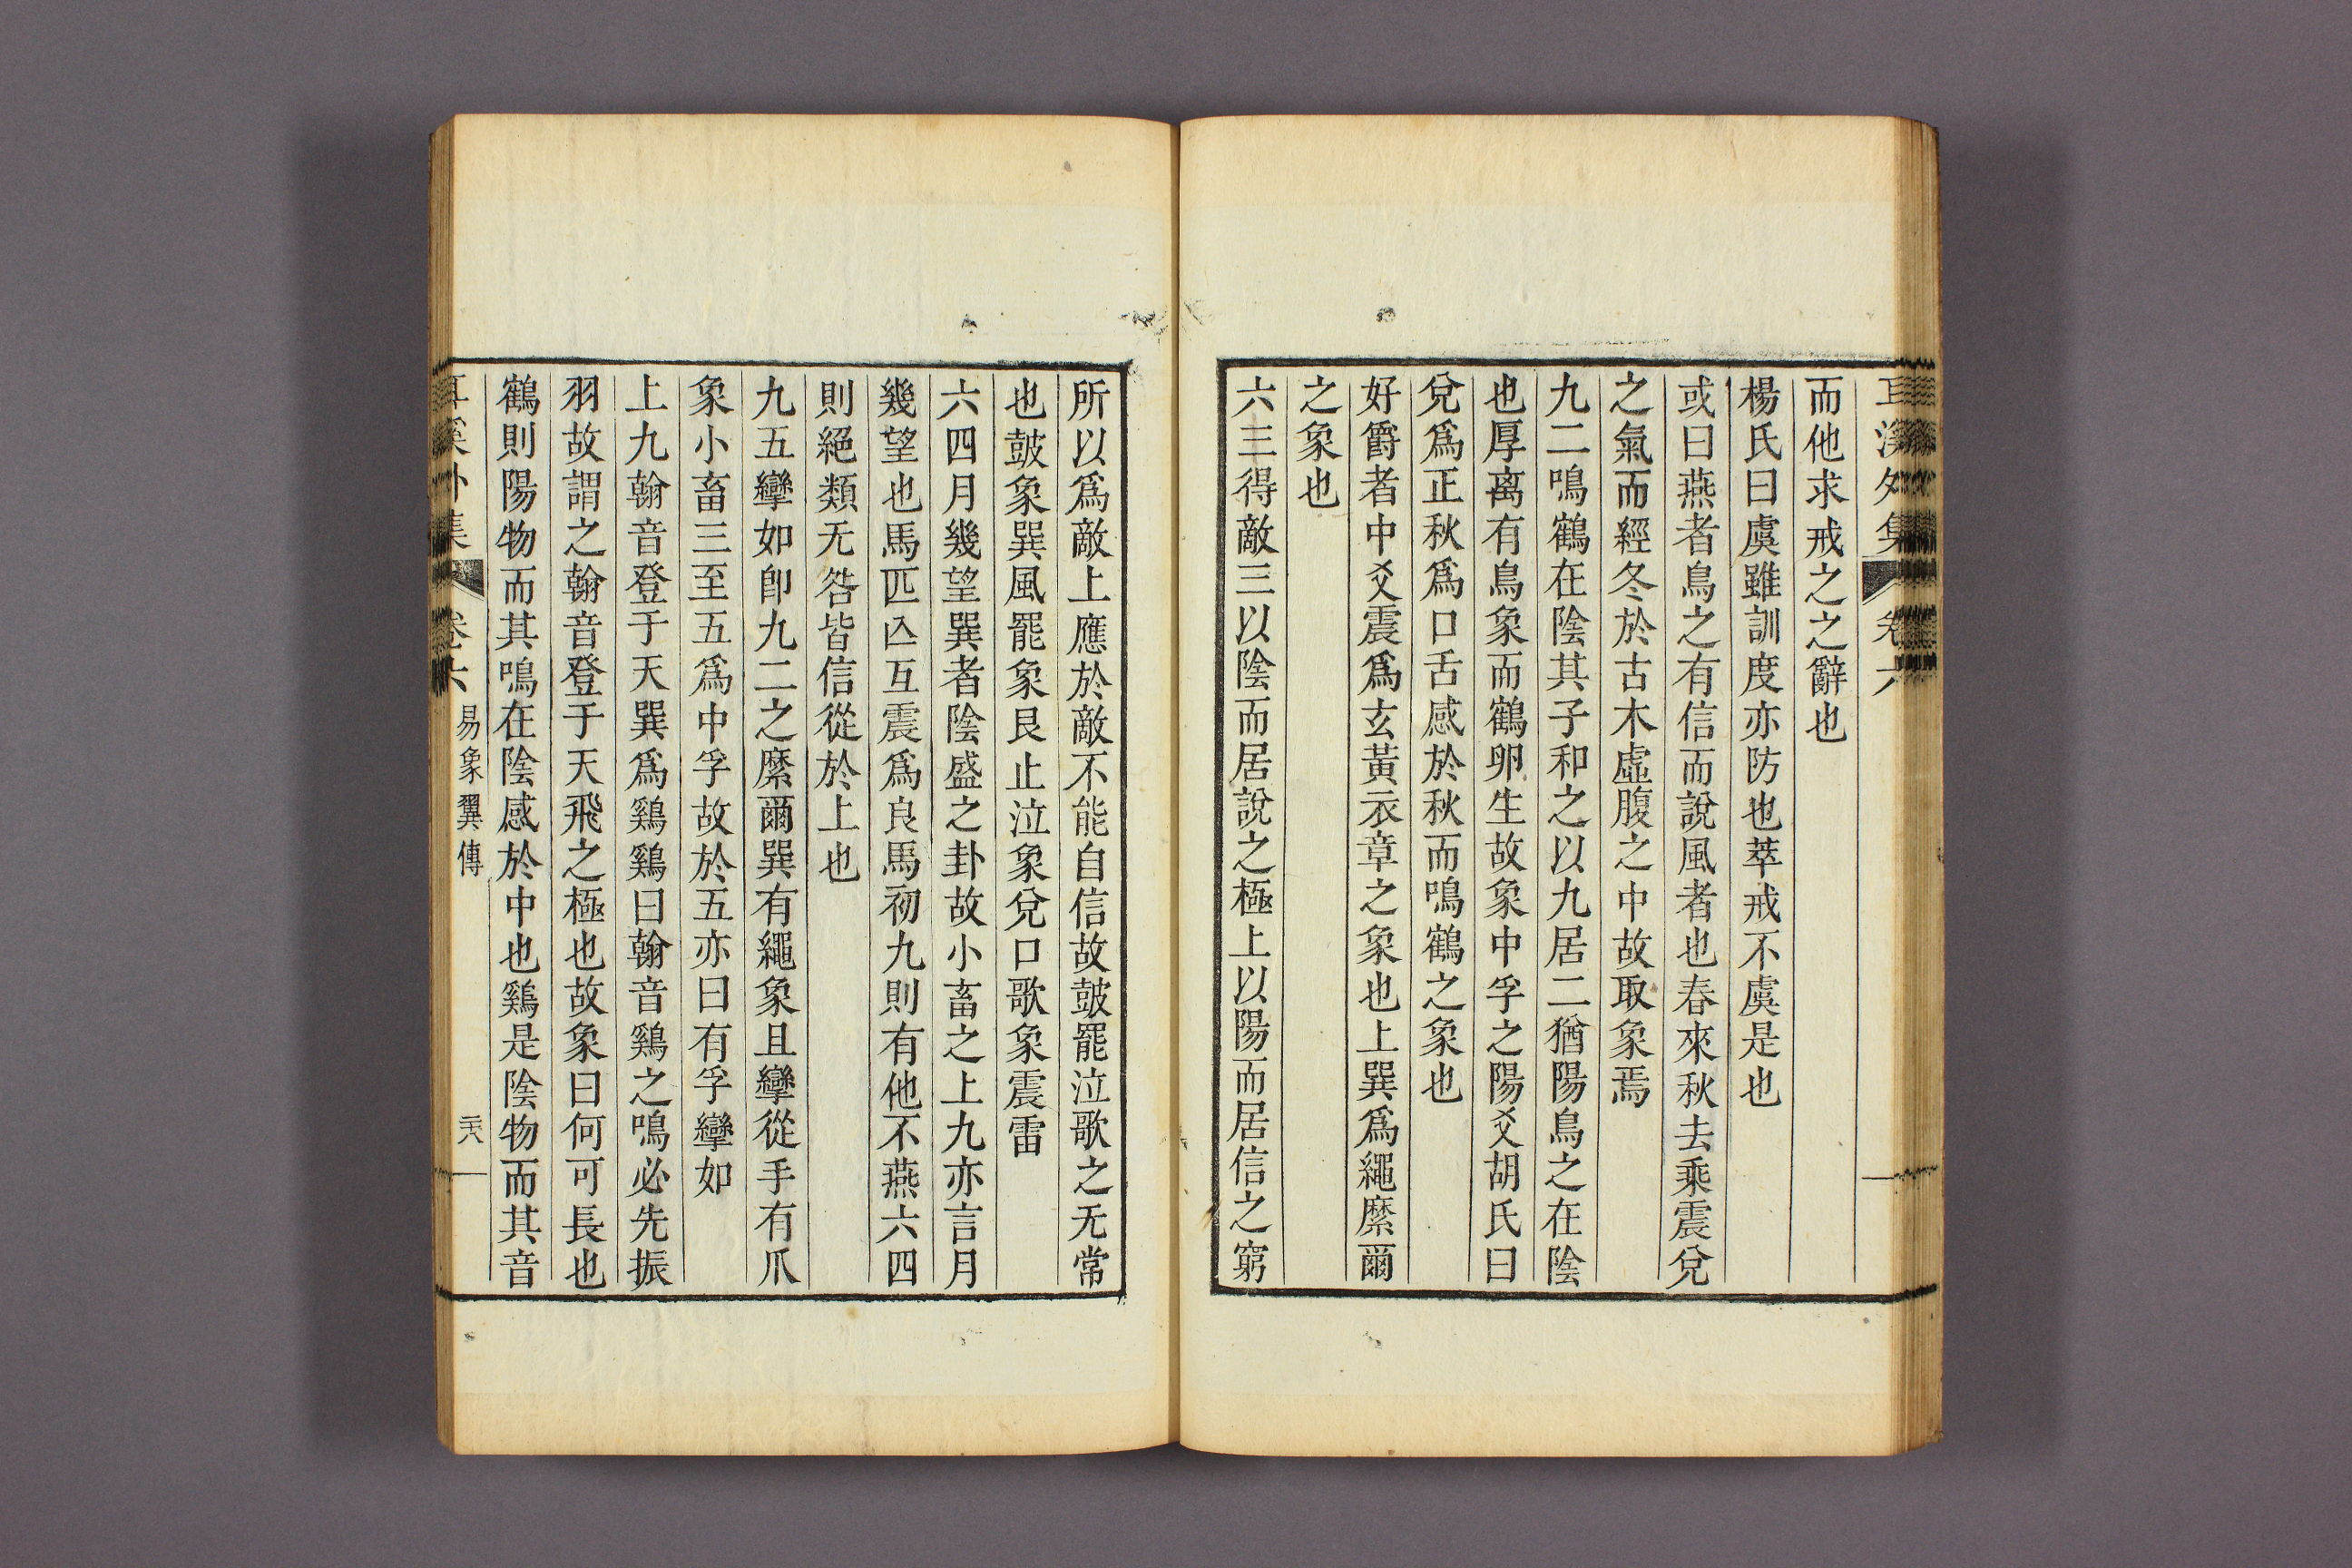 耳溪外集 卷六
而他求戒之之辭也
楊氏曰虞雖訓度亦防也萃戒不虞是也
或曰燕者鳥之有信而說風者也春來秋去乘震兌
之氣而經冬於古木虛腹之中故取象焉
九二鳴鶴在陰其子和之以九居二猶陽鳥之在陰
也厚离有鳥象而鶴卵生故象中孚之陽爻胡氏曰
兌爲正秋爲口舌感於秋而鳴鶴之象也
好爵者中爻震爲玄黃衣章之象也上巽爲繩縻爾
之象也
六三得敵三以陰而居說之極上以陽而居信之窮
所以爲敵上應於敵不能自信故鼓罷泣歌之无常
也鼓象巽風罷象艮止泣象兌口歌象震雷
六四月幾望巽者陰盛之卦故小畜之上九亦言月
幾望也馬匹亾互震爲良馬初九則有他不燕六四
則絕類无咎皆信從於上也
九五攣如卽九二之縻爾巽有繩象且攣從手有爪
象小畜三至五爲中孚故於五亦曰有孚攣如
上九翰音登于天巽爲鷄鷄曰翰音鷄之鳴必先振
羽故謂之翰音登于天飛之極也故象曰何可長也
鶴則陽物而其鳴在陰感於中也鷄是陰物而其音
耳溪外集 卷六 易象翼傳 二十八